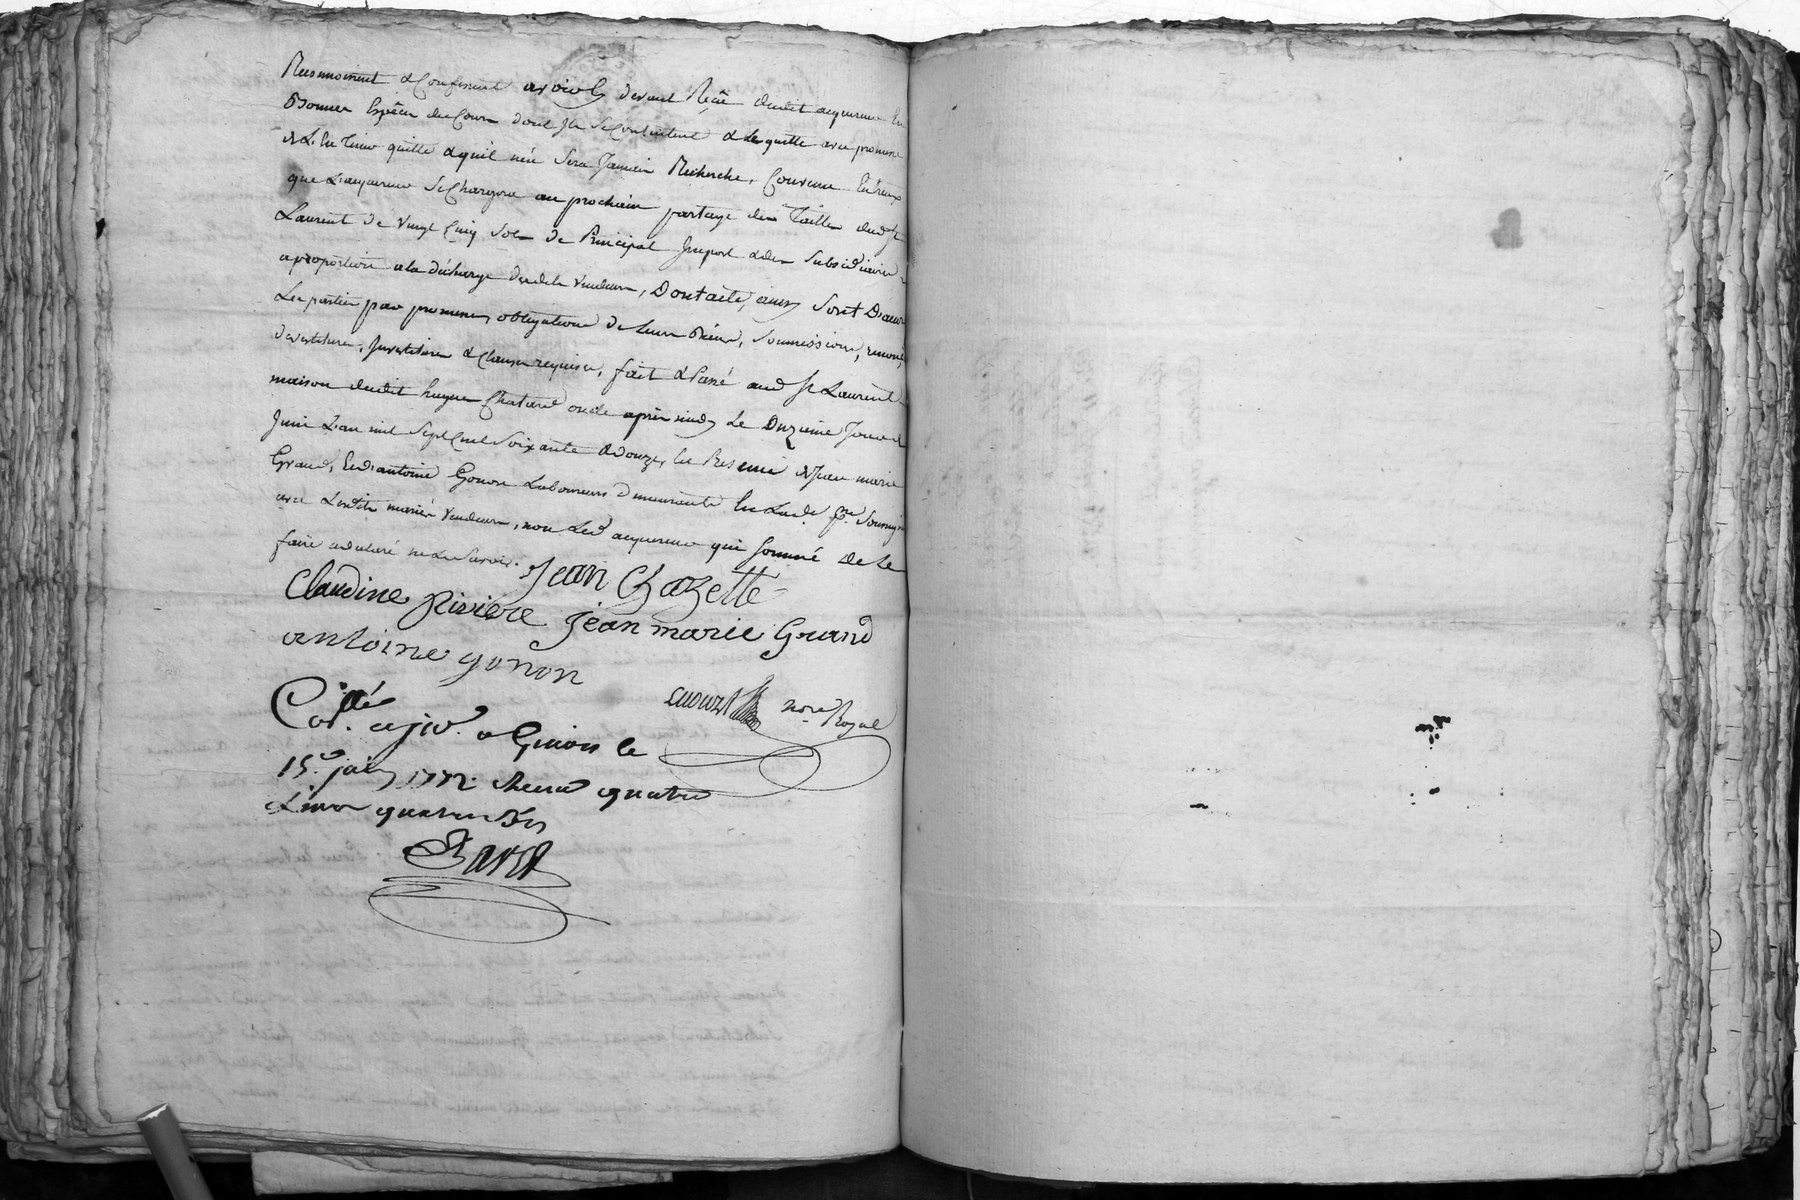 Reconnoissent & Confessent avoir Cy devant Reçû dudit acquereur En
Bonnes Espèces du Cours dont Ils Se Contentent & Le quitte avec promesse
de L'En Tenir quitte & qu'il n'en Sera Jamais Recherché, Convenu Entreux
que L'acquereur Se Chargera au prochain partage des Tailles dud. St
Laurent de Vingt Cinq Sols de Principal Import & des Subsidiaires
a proportion a la décharge desdits Vendeurs, Dont acte, ainsy Sont D'accord
Les parties par promesses, obligations de Leurs Biens, Soumissions, renon.
devestiture, Investiture & Clauses requises, fait & Passé aud. St Laurent
maison dudit hugue Chatard onde après midy Le Onzieme Jour de
Juin L'an mil Sept Cent Soixante & douze, En Presence de Jean marie
Grand, Et d'antoine Gonon Laboureurs demeurants En Lad. psse Soussignés
avec Lesdits mariés Vendeurs, non Led. acquereur qui Sommé de Le
faire a declaré ne Le Savoir.
Jean Chazette
Claudine Riviere Jean marie Grand
antoine gonon
nore Royal
Con.llé a
le
15e. juin 1772. Reçu quatre
Livres quatre Sols